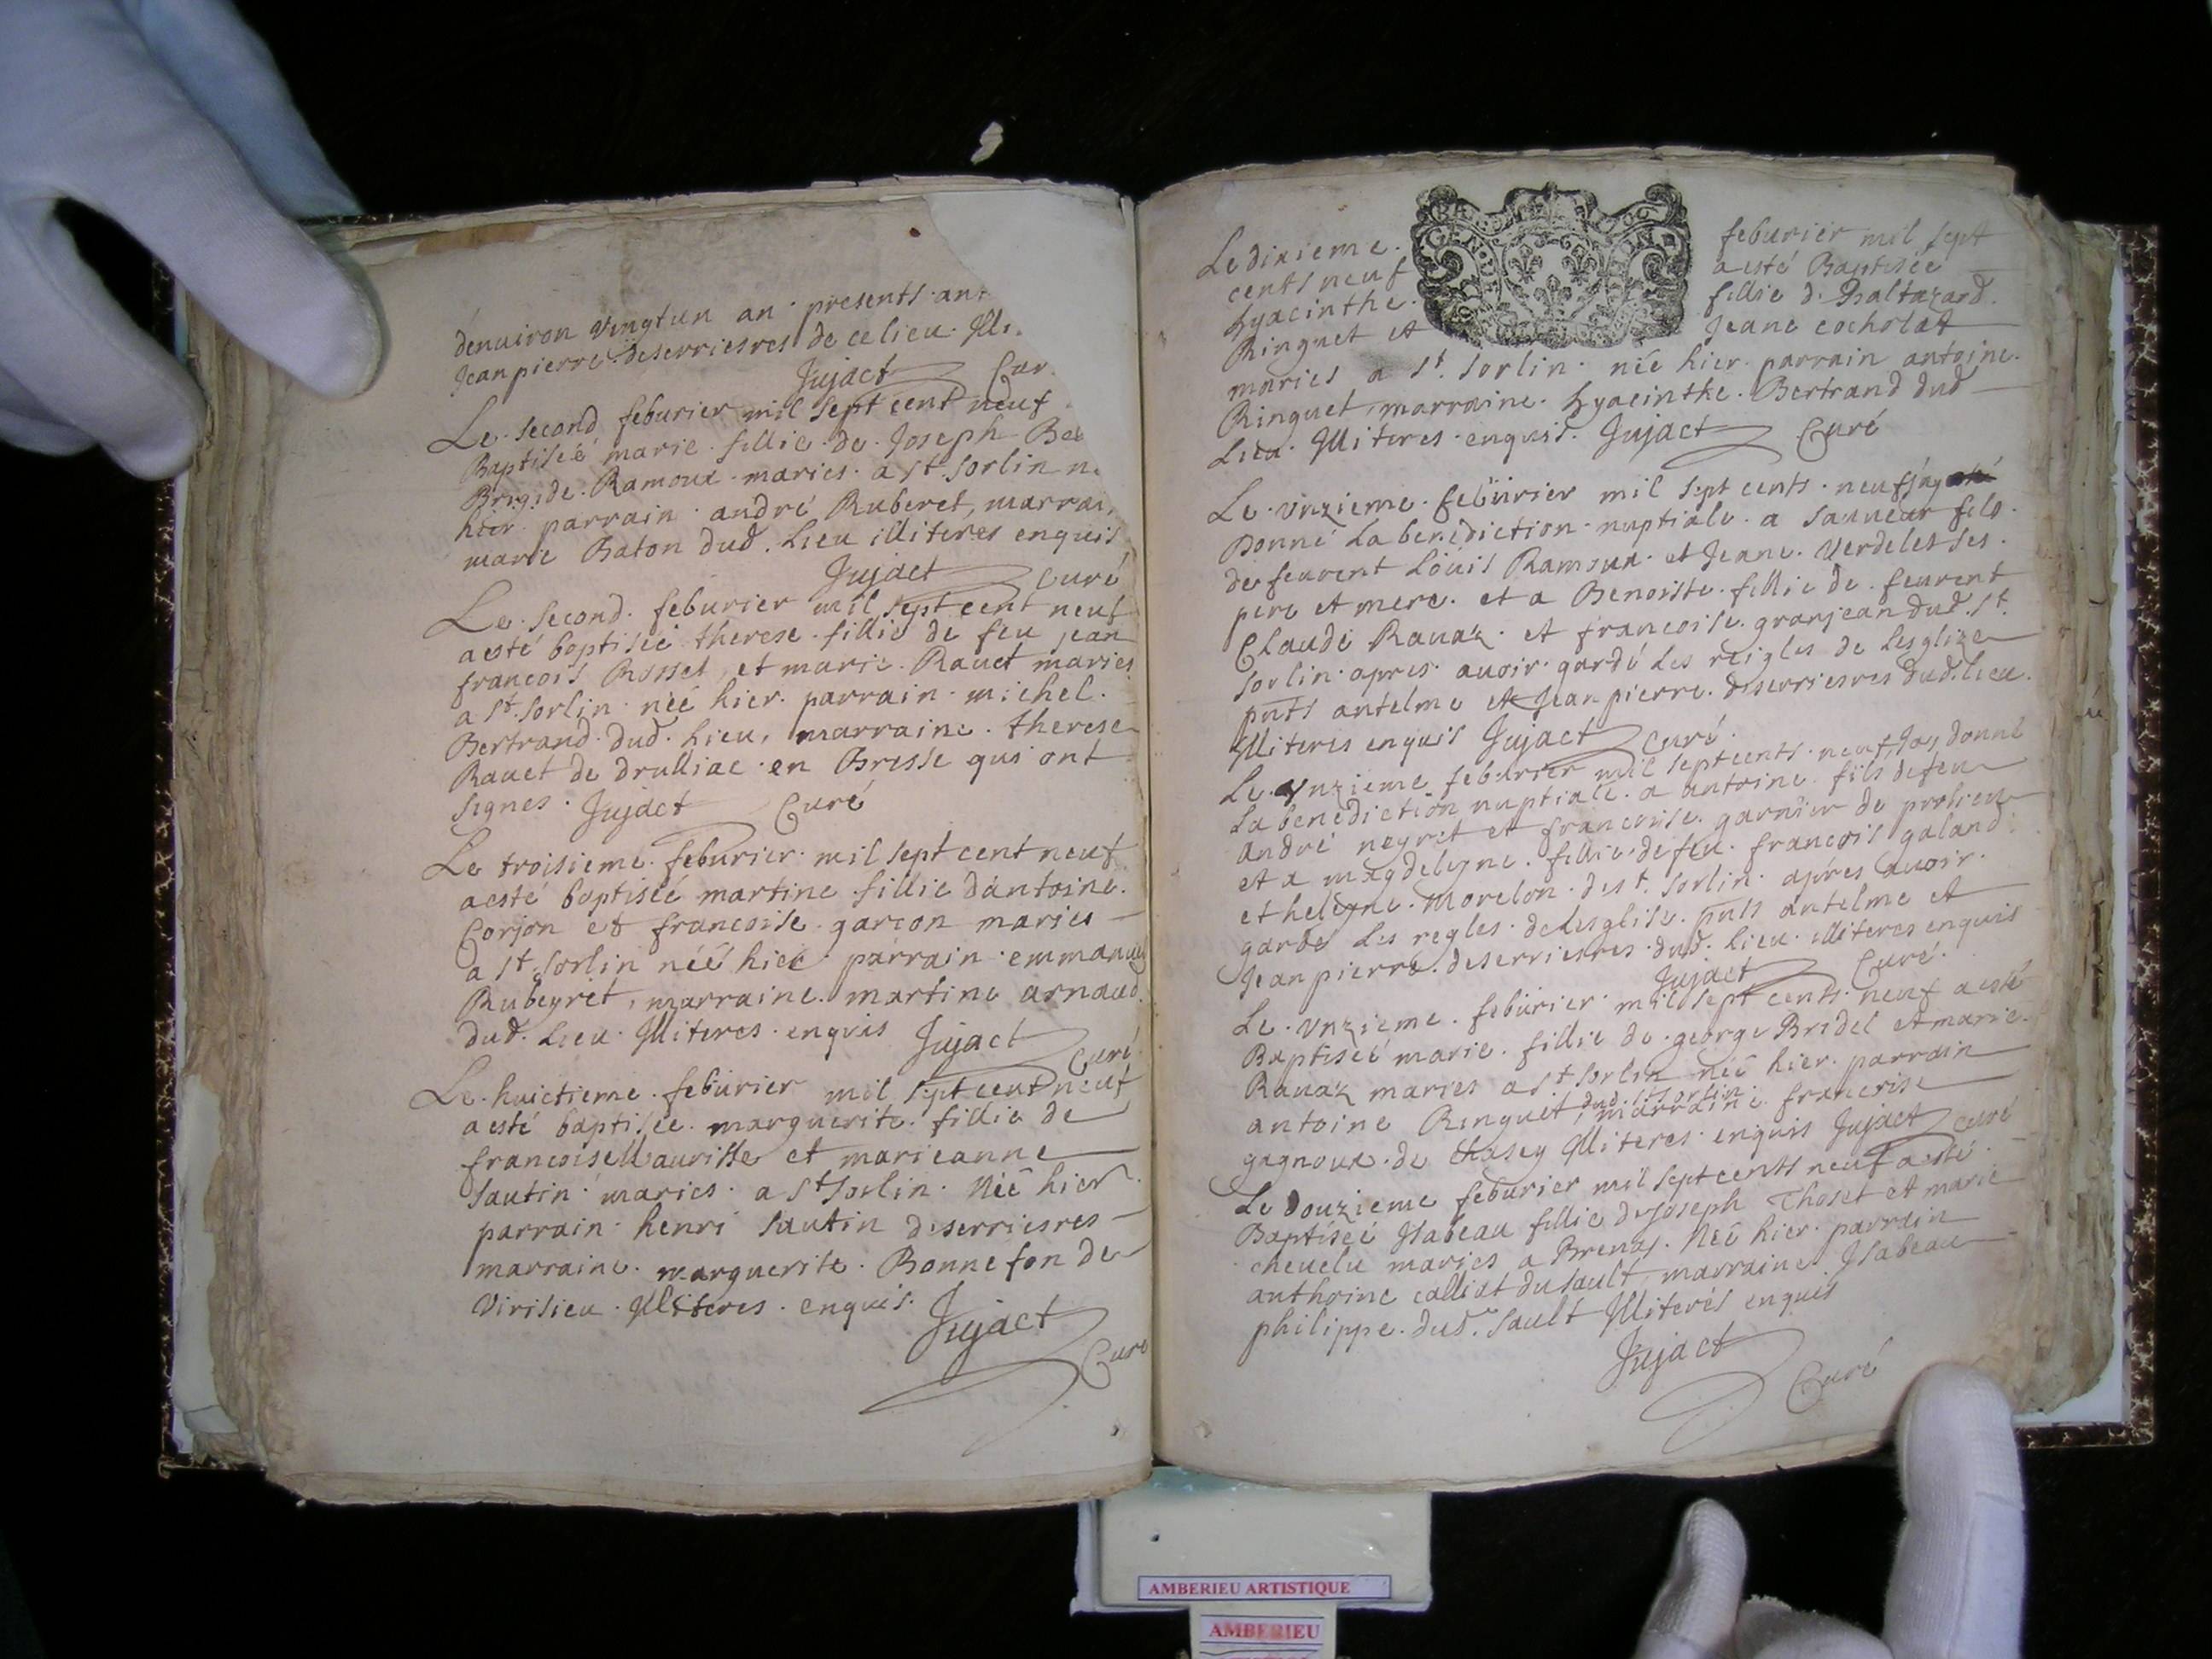 denuiron vingtun an presents ant
Jean pierre deserriesres de ce lieu Illi
Jujact Cur
Le second feburier mil sept cent neuf
Baptiseé marie fillie de Joseph Be
Brigide Ramoux maries a st sorlin n
hier parrain andré Ruberet, marrai
marie Baton dud. Lieu illiteres enquis
Jujact Curé
Le second feburier mil sept cent neuf
a esté baptiseé therese fillie de feu jean
francois Rosset et marie Rauet maries
a st sorlin neé hier parrain michel
Bertrand dud. Lieu, marraine therese
Rauet de drulliac en Bresse qui ont
signes Jujact Curé
Le troisieme feburier mil sept cent neuf
a esté baptiseé martine fillie dantoine
Corjon et francoise garcon maries
a st sorlin neé hier parrain emmanuel
Rubeyret, marraine martine arnaud
dud. Lieu Illiteres enquis Jujact Curé
Le huictieme feburier mil sept cent neuf
a esté baptisee marguerite fillie de
francois et marieanne
sautin maries a st sorlin neé hier
parrain henri sautin deserriesres
marraine marguerite Bonnefon de
Virisieu Illiteres enquis
Jujact
Curé
Le dixieme feburier mil sept
cents neuf a esté Baptiseé
hyacinthe fillie de Baltazard
Ringuet et Jeane cocholat
GEN
maries a st sorlin neé hier parrain antoine
Ringuet, marraine hyacinthe Bertrand dud
Lieu Illiteres enquis Jujact Curé
Le vnzieme feburier mil sept cents neuf jay
Donné La benediction nuptiale a sauueur fils
de feurent Löuis Ramoux et Jeane Verdelet ses
pere et mere et a Benoiste fillie de feurent
Claude Rauaz et francoise granjean dud. st
sorlin apres auoir gardé Les reigles de Lesglize
pnts antelme et Jean pierre deserriesres dud. lieu
Illiteres enquis Jujact Curé
Le vnzieme feburier mil sept cents neuf, Jay donné
La benediction nuptiale a antoine fils de feu
André neyret et francoise garnier de prolieu
et a magdeleyne fillie de feu francois galand
et heleyne Morelon de st sorlin apres auoir
garde Les regles de Lesglise pnts antelme et
Jean pierre deserriesres dud. lieu illiteres enquis
Jujact Curé
Le vnzieme feburier mil sept cents neuf a esté
Baptiseé marie fillie de george Bridel et marie
Rauaz maries a st sorlin neé hier parrain
dud. st sorlin
antoine Ringuet, marraine francoise
gagnoux de Chasey Illiteres enquis Jujact curé
Le Douzieme feburier mil sept cents neuf a esté
Baptiseé Isabeau fillie de Joseph Thoset et marie
cheuelu maries a Brenas Neé hier parrain
anthoine calliat du sault, marraine Isabeau
philippe dud. sault Illiterés enquis
Jujact
Curé
AMBERIEU ARTISTIQUE
AMBERIEU